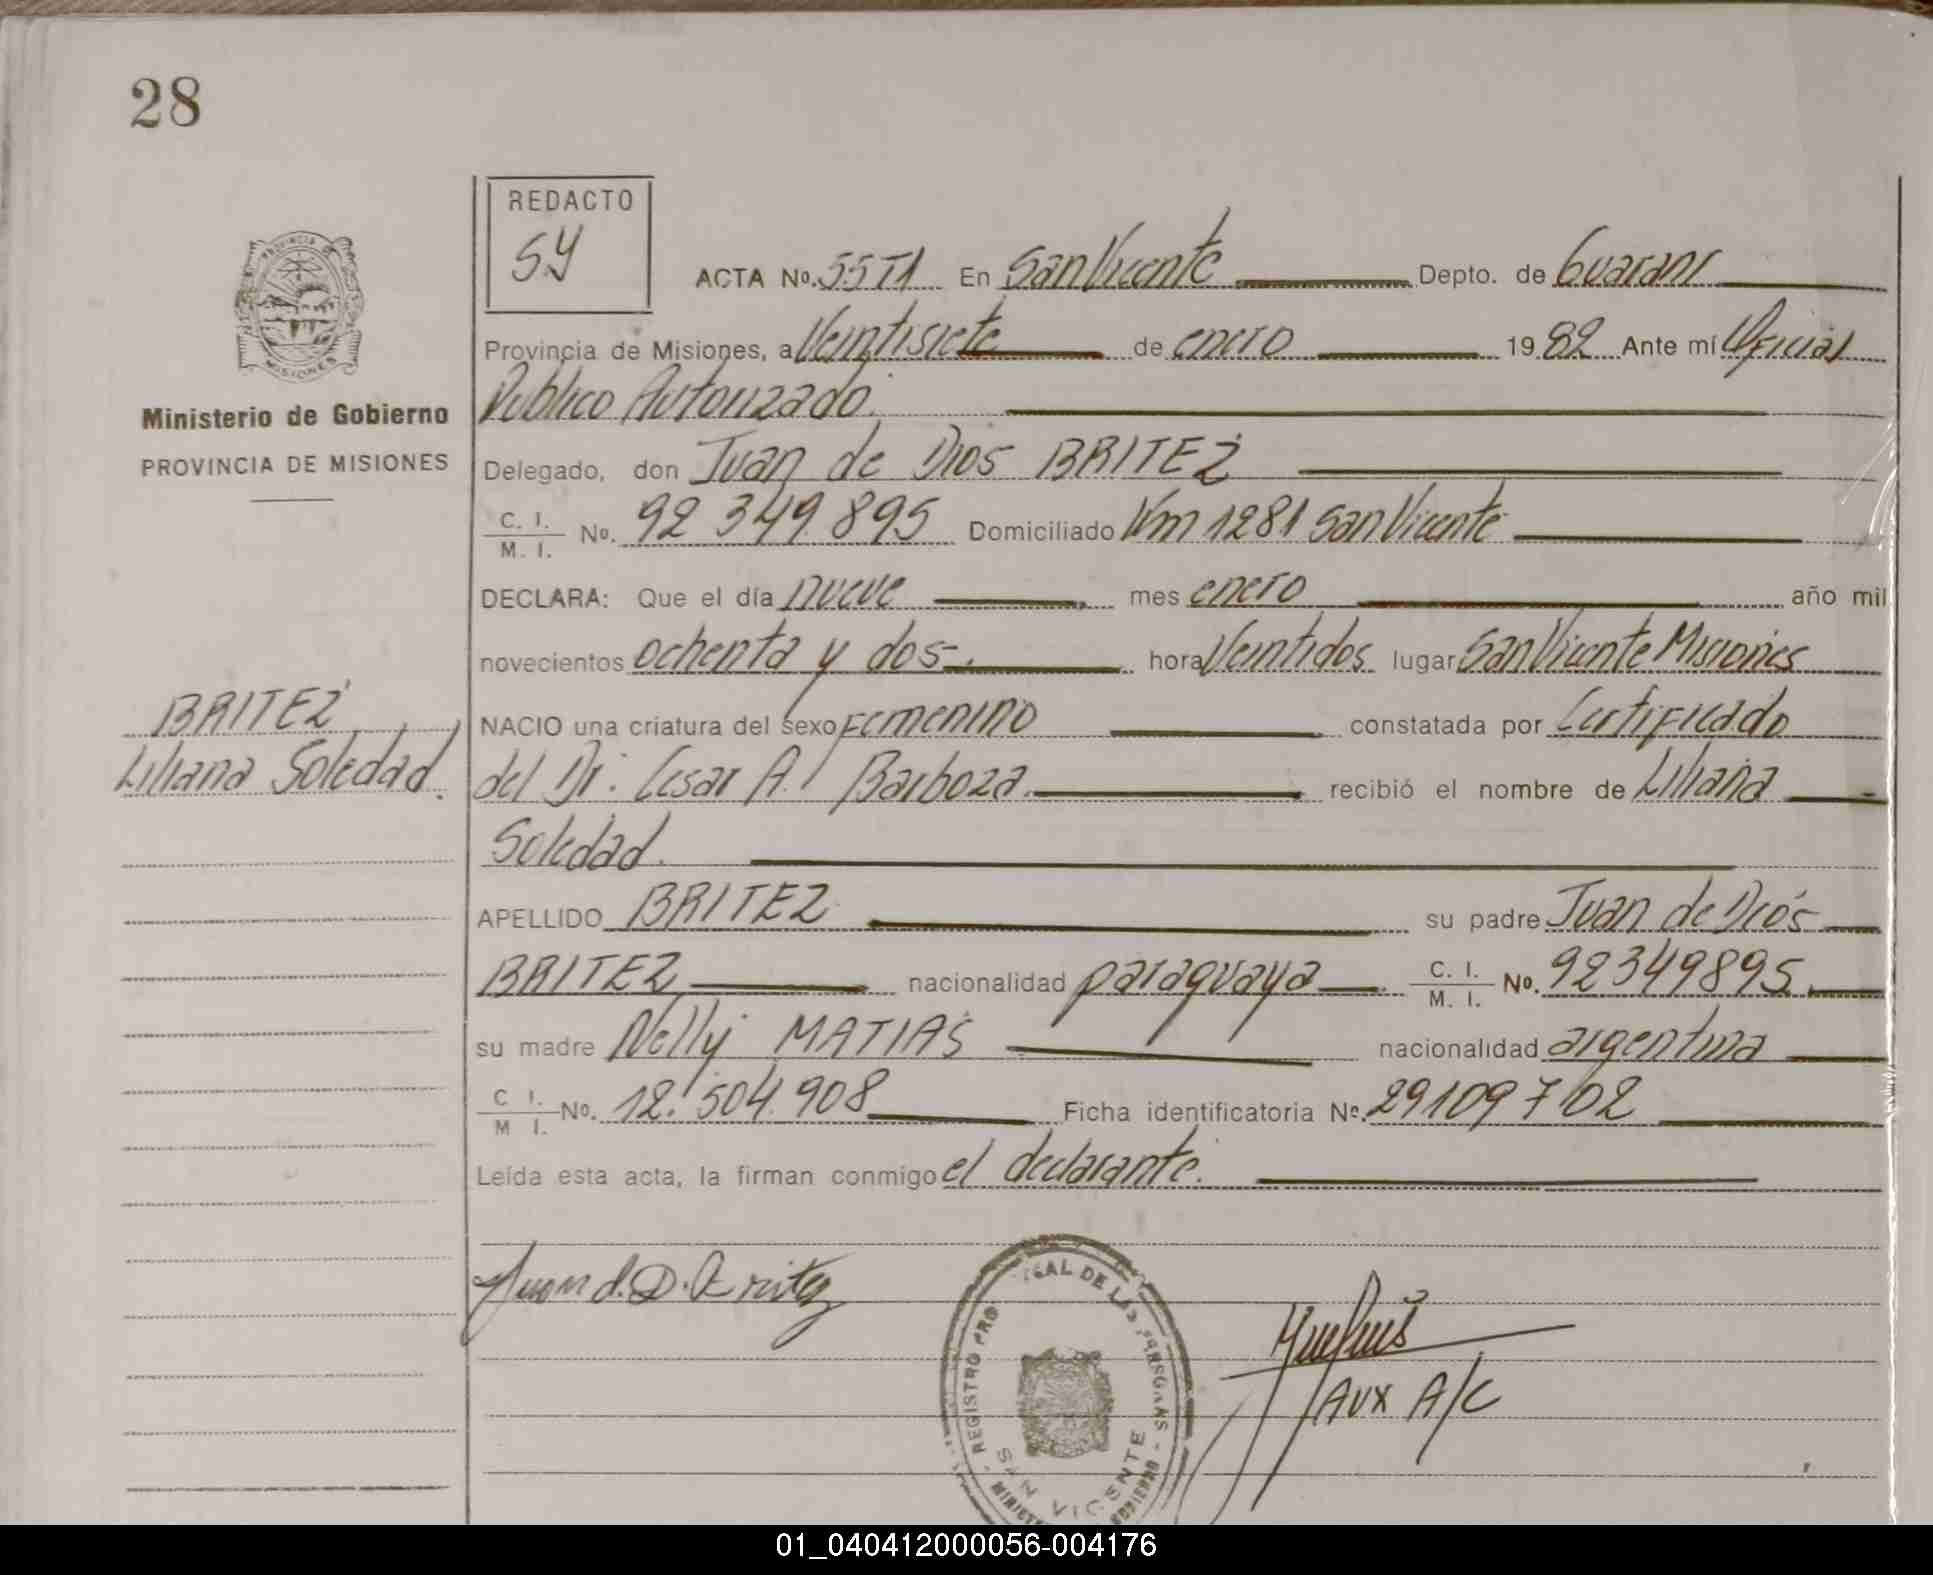 28
REDACTO
SY
ACTA No. 55T1 En San Vicente Depto. de Guaraní
Provincia de Misiones, a Veintisiete de enero 1982 Ante mí Oficial
Publico Autorizado.
Ministerio de Gobierno
PROVINCIA DE MISIONES
Delegado, don Juan de Dios BRITEZ
C. I. / M. I. No. 92 349.895 Domiciliado Km 1281 San Vicente
DECLARA: Que el día nueve mes enero año mil
novecientos ochenta y dos-. hora Veintidos lugar San Vicente Misiones
BRITEZ
Liliana Soledad.
NACIO una criatura del sexo Femenino constatada por Certificado
del Dr. Cesar A. Barboza. recibió el nombre de Liliana
Soledad.
APELLIDO BRITEZ su padre Juan de Dios
BRITEZ nacionalidad paraguaya C. I. / M. I. No. 92349895.
su madre Nelly MATIAS nacionalidad argentina
C I. / M I. No. 12.504.908 Ficha identificatoria No. 29109702
Leída esta acta, la firman conmigo el declarante.
Juan d. D. Britez
AUX A/C
REGISTRO PRO
DE LAS PERSONAS
SAN VICENTE
01_040412000056-004176